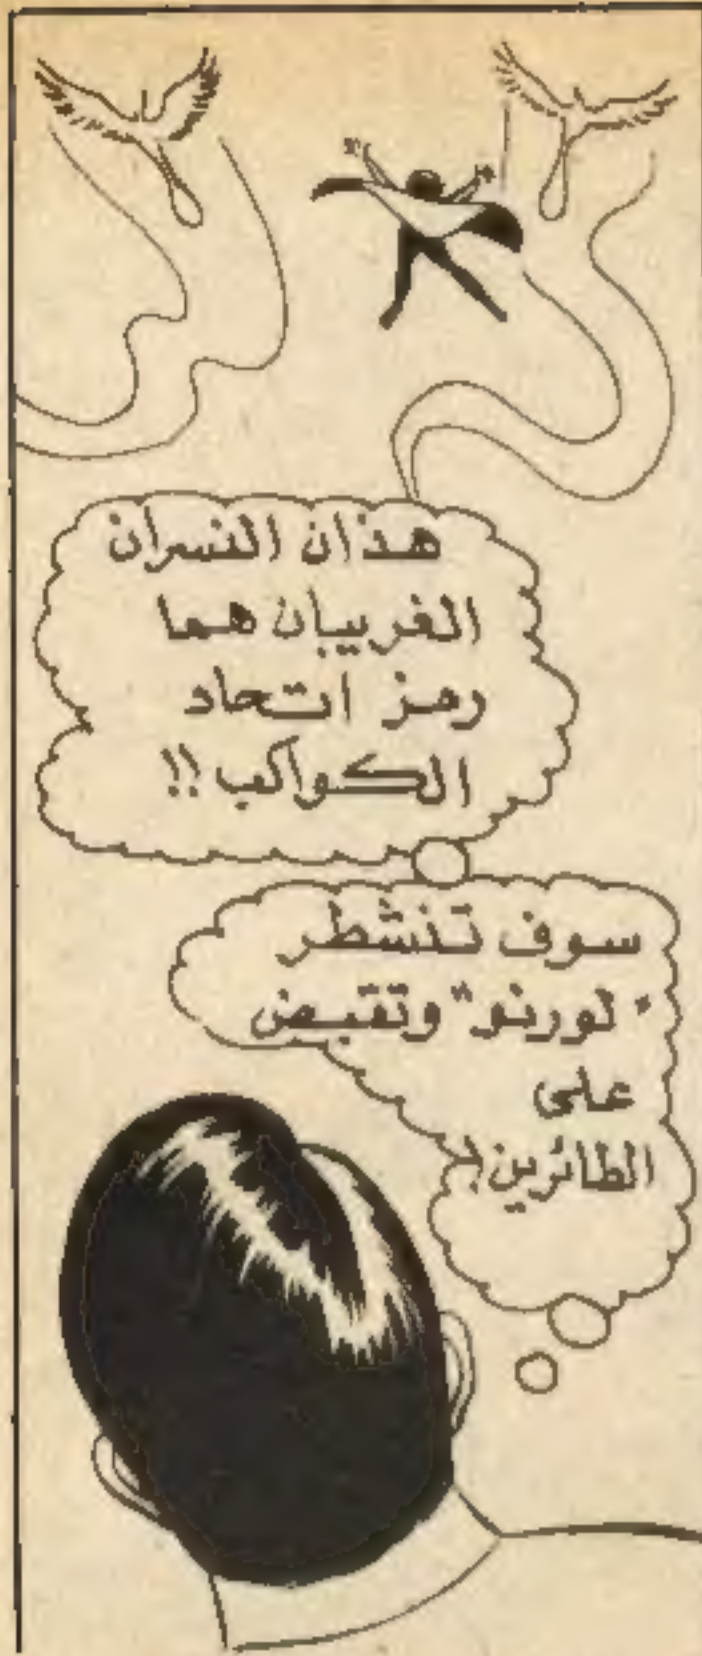 هذان النسران
الغريبان هما
رمز اتحاد
الكواكب !!
سوف تنشطر
"لورنو" وتقبض
على
الطائرين!